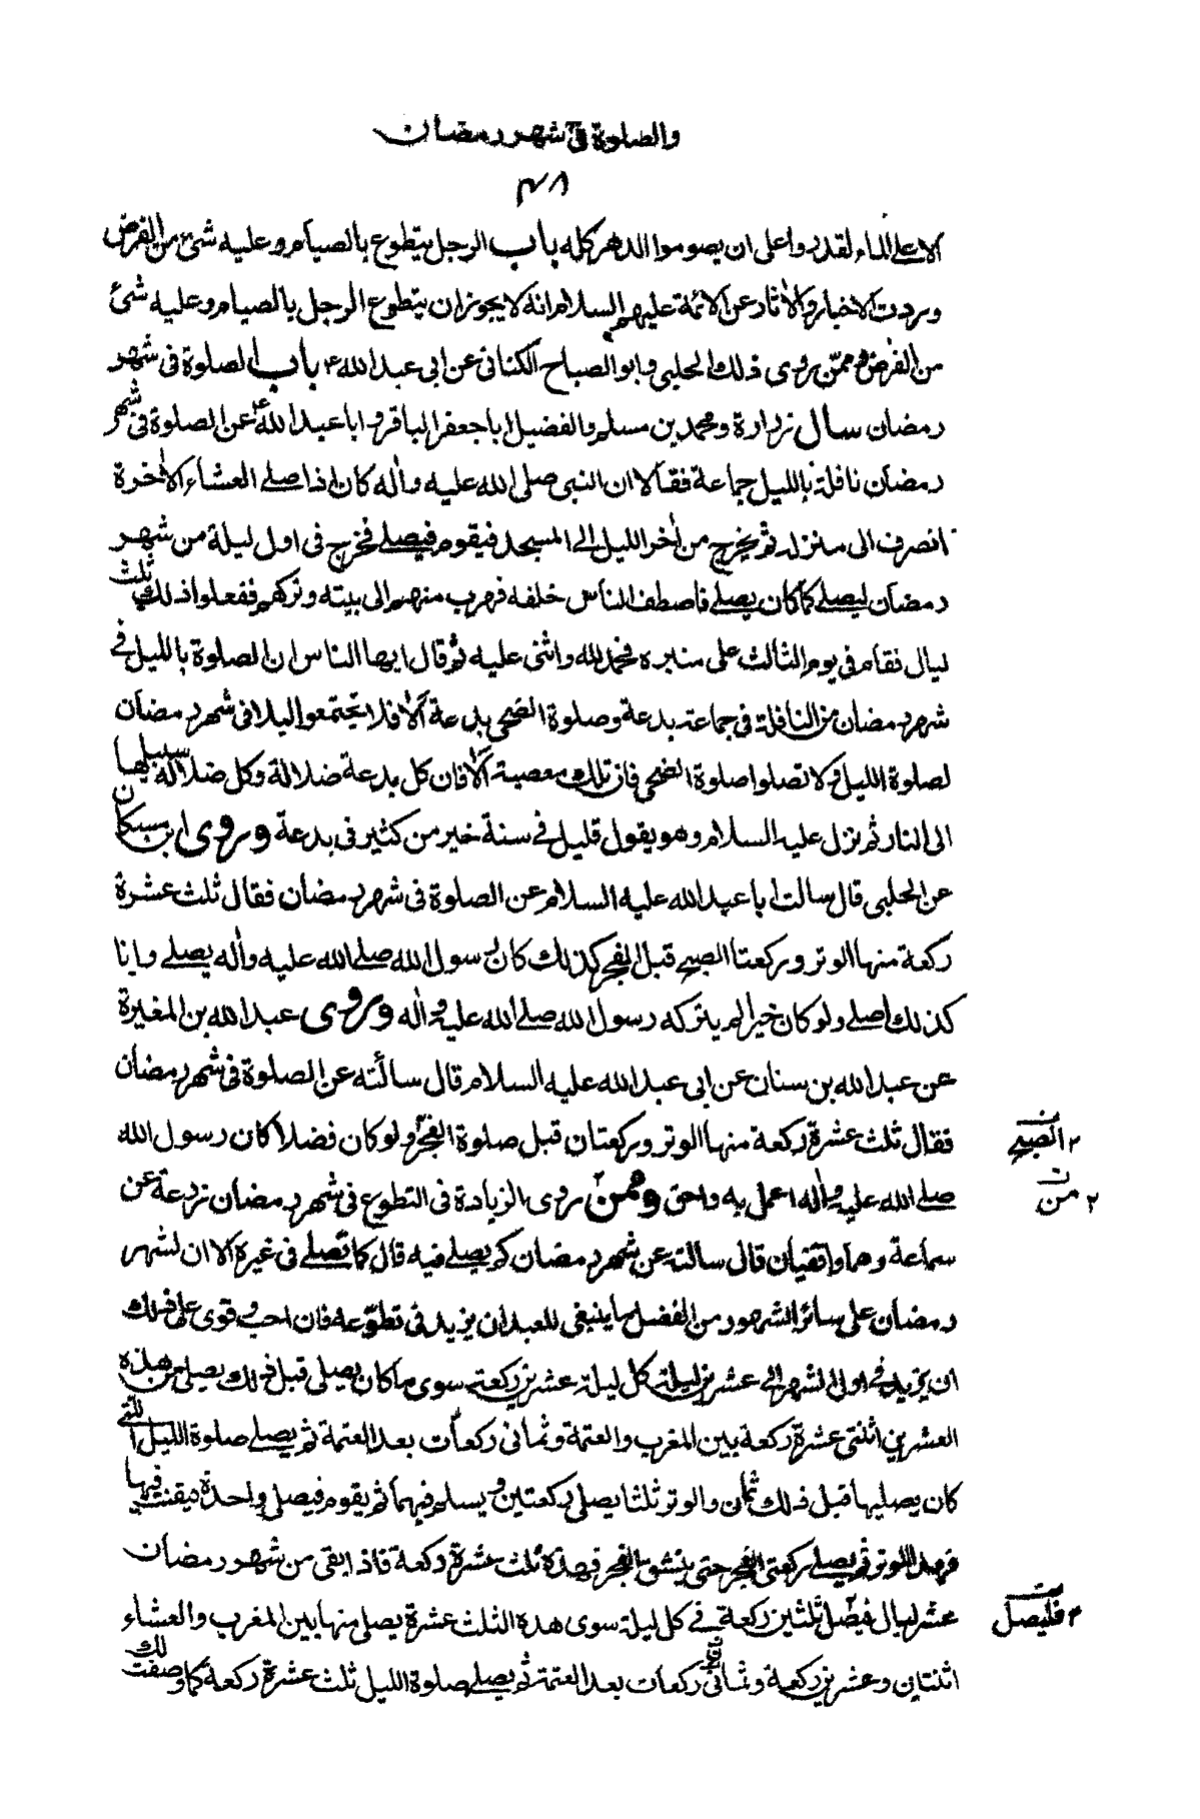 والصلوة في شهر رمضان
٤٨
الا على الماء لقدروا على ان يصوموا الدهر كله باب الرجل يتطوع بالصيام وعليه شئ من الفرض
وردت الاخبار والاثار عن الائمة عليهم السلام انه لا يجوز ان يتطوع الرجل بالصيام وعليه شئ
من الفرض وممن روى ذلك الحلبى وابو الصباح الكنانى عن ابى عبد الله ع باب الصلوة فى شهر
رمضان سال زرارة ومحمد بن مسلم والفضيل ابا جعفر الباقر وابا عبد الله ع عن الصلوة فى شهر
رمضان نافلة بالليل جماعة فقالا ان النبى صلى الله عليه واله كان اذا صلى العشاء الاخرة
انصرف الى منزله ثم يخرج من اخر الليل الى المسجد فيقوم فيصلى فخرج فى اول ليلة من شهر
رمضان ليصلى كما كان يصلى فاصطف الناس خلفه فهرب منهم الى بيته وتركهم ففعلوا ذلك ثلث
ليال فقام فى يوم الثالث على منبره فحمد الله واثنى عليه ثم قال ايها الناس ان الصلوة بالليل فى
شهر رمضان من النافلة فى جماعة بدعة وصلوة الضحى بدعة الا فلا تجتمعوا ليلا فى شهر رمضان
لصلوة الليل ولا تصلوا صلوة الضحى فان تلك معصية الا فان كل بدعة ضلالة وكل ضلالة سبيلها
الى النار ثم نزل عليه السلام وهو يقول قليل فى سنة خير من كثير فى بدعة وروى ابن مسكان
عن الحلبى قال سالت ابا عبد الله عليه السلام عن الصلوة فى شهر رمضان فقال ثلث عشرة
ركعة منها الوتر وركعتا الصبح قبل الفجر كذلك كان رسول الله صلى الله عليه واله يصلى وانا
كذلك اصلى ولو كان خيرا لم يتركه رسول الله صلى الله عليه واله وروى عبد الله بن المغيرة
عن عبد الله بن سنان عن ابى عبد الله عليه السلام قال سألته عن الصلوة فى شهر رمضان
فقال ثلث عشرة ركعة منها الوتر وركعتان قبل صلوة الفجر ولو كان فضلا كان رسول الله
٢ الصبح
صلى الله عليه واله اعمل به واحق وممن روى الزيادة فى التطوع فى شهر رمضان زرعة عن
٢ من
سماعة وهما واقفيان قال سالته عن شهر رمضان كم يصلى فيه قال كما تصلى فى غيره الا ان لشهر
رمضان على سائر الشهور من الفضل ما ينبغى للعبد ان يزيد فى تطوعه فان احب وقوى على ذلك
ان يزيد فى اول الشهر الى عشرين ليلة كل ليلة عشرين ركعة سوى ما كان يصلى قبل ذلك يصلى من هذه
العشرين اثنتى عشرة ركعة بين المغرب والعتمة وثمانى ركعات بعد العتمة ثم يصلى صلوة الليل التى
كان يصليها قبل ذلك ثمان والوتر ثلثا يصلى ركعتين ويسلم فيهما ثم يقوم فيصلى واحدة فيقنت فيها
فهذا الوتر ثم يصلى ركعتى الفجر حتى ينشق الفجر فهذه ثلث عشرة ركعة فاذا بقى من شهر رمضان
عشر ليال فيصل ثلثين ركعة فى كل ليلة سوى هذه الثلث عشرة يصلى منها بين المغرب والعشاء
٢ فليصل
اثنتين وعشرين ركعة وثمانى ركعات بعد العتمة ثم يصلى صلوة الليل ثلث عشرة ركعة كما وصفت لك